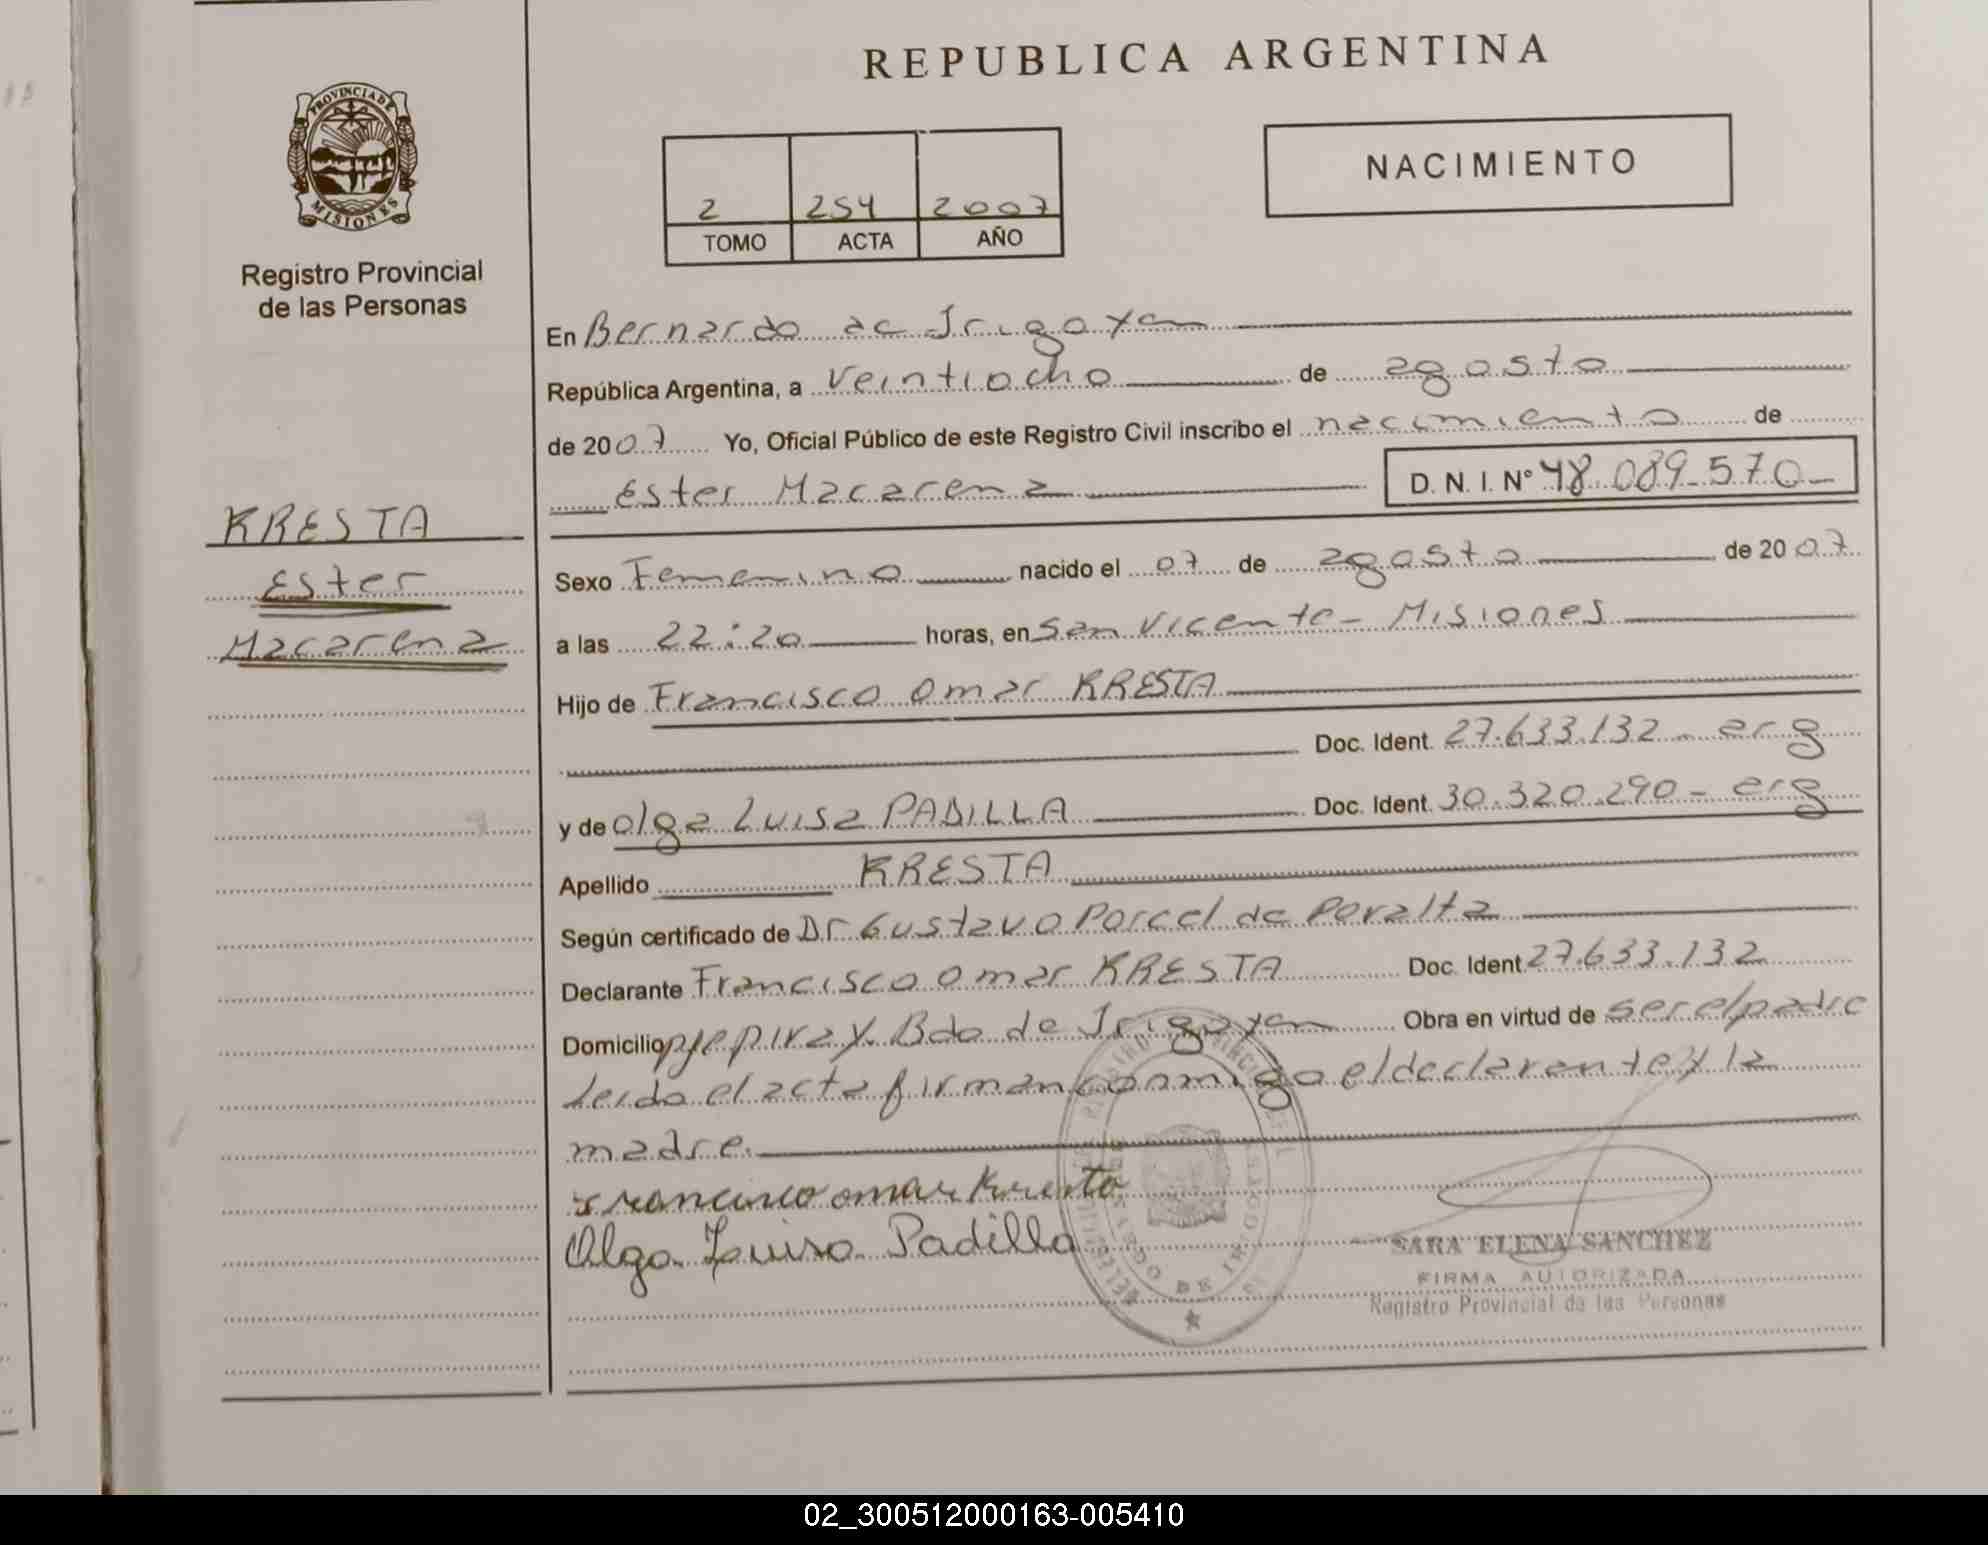 REPUBLICA ARGENTINA
PROVINCIA DE
MISIONES
Registro Provincial
de las Personas
2 254 2007
TOMO ACTA AÑO
NACIMIENTO
KRESTA
Ester
Macarena
En Bernardo de Irigoyen
República Argentina, a veintiocho de agosto
de 2007 Yo, Oficial Público de este Registro Civil inscribo el nacimiento de
Ester Macarena D. N. I. Nº 48.089.570
Sexo Femenino nacido el 07 de agosto de 2007
a las 22:20 horas, en San Vicente - Misiones
Hijo de Francisco Omar KRESTA
Doc. Ident. 27.633.132 - arg
y de Olga Luisa PADILLA Doc. Ident. 30.320.290 - arg
Apellido KRESTA
Según certificado de Dr Gustavo Porcel de Peralta
Declarante Francisco Omar KRESTA Doc. Ident. 27.633.132
Domicilio Pje piray. Bdo de Irigoyen Obra en virtud de ser el padre
Leida el acta firman conmigo el declarante y la
madre.
Francisco omar Kresta
Olga Luisa Padilla
SARA ELENA SANCHEZ
FIRMA AUTORIZADA
Registro Provincial de las Personas
02_300512000163-005410